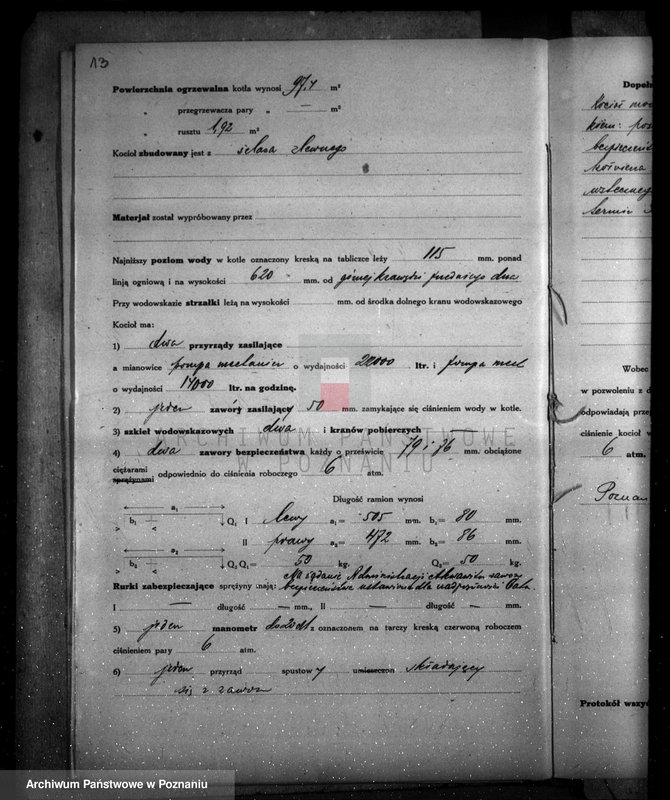 13
Powierzchnia ogrzewalna kotła wynosi 97,1 m²
„ przegrzewacza pary „ — m²
„ rusztu 1,92 m²
Kocioł zbudowany jest z żelaza zlewnego
Materjał został wypróbowany przez
Najniższy poziom wody w kotle oznaczony kreską na tabliczce leży 115 mm. ponad
linją ogniową i na wysokości 620 mm. od górnej krawędzi przedniego dna
Przy wodowskazie strzałki leżą na wysokości mm. od środka dolnego kranu wodowskazowego
Kocioł ma:
1) dwa przyrządy zasilające
a mianowicie pompa o wydajności 22000 ltr. i pompa
o wydajności 14000 ltr. na godzinę.
2) jeden zawór zasilający 50 mm. zamykające się ciśnieniem wody w kotle.
3) szkieł wodowskazowych dwa i kranów pobierczych
4) dwa zawory bezpieczeństwa każdy o prześwicie 79 i 76 mm. obciążone
ciężarami
sprężynami odpowiednio do ciśnienia roboczego 6 atm.
Długość ramion wynosi
a₁ b₁ Q₁ I lewy a₁= 505 mm. b₁= 80 mm.
II prawy a₂= 472 mm. b₂= 86 mm.
a₂ b₂ Q₂ Q₁= 50 kg. Q₂= 50 kg.
Na żądanie Administracji zawory
Rurki zabezpieczające sprężyny mają: bezpieczeństwa
I — długość — mm., II — długość — mm.
5) jeden manometr do 20 at z oznaczonem na tarczy kreską czerwoną roboczem
ciśnieniem pary 6 atm.
6) jeden przyrząd spustowy umieszczon składający
się z zaworu
Dopeł
Kocioł
bezpieczeń
termin
Wobec
w pozwoleniu z d
odpowiadają prze
ciśnienie kocioł w
6 atm.
Poznan
Protokół wszy
ARCHIWUM PAŃSTWOWE
W POZNANIU
Archiwum Państwowe w Poznaniu